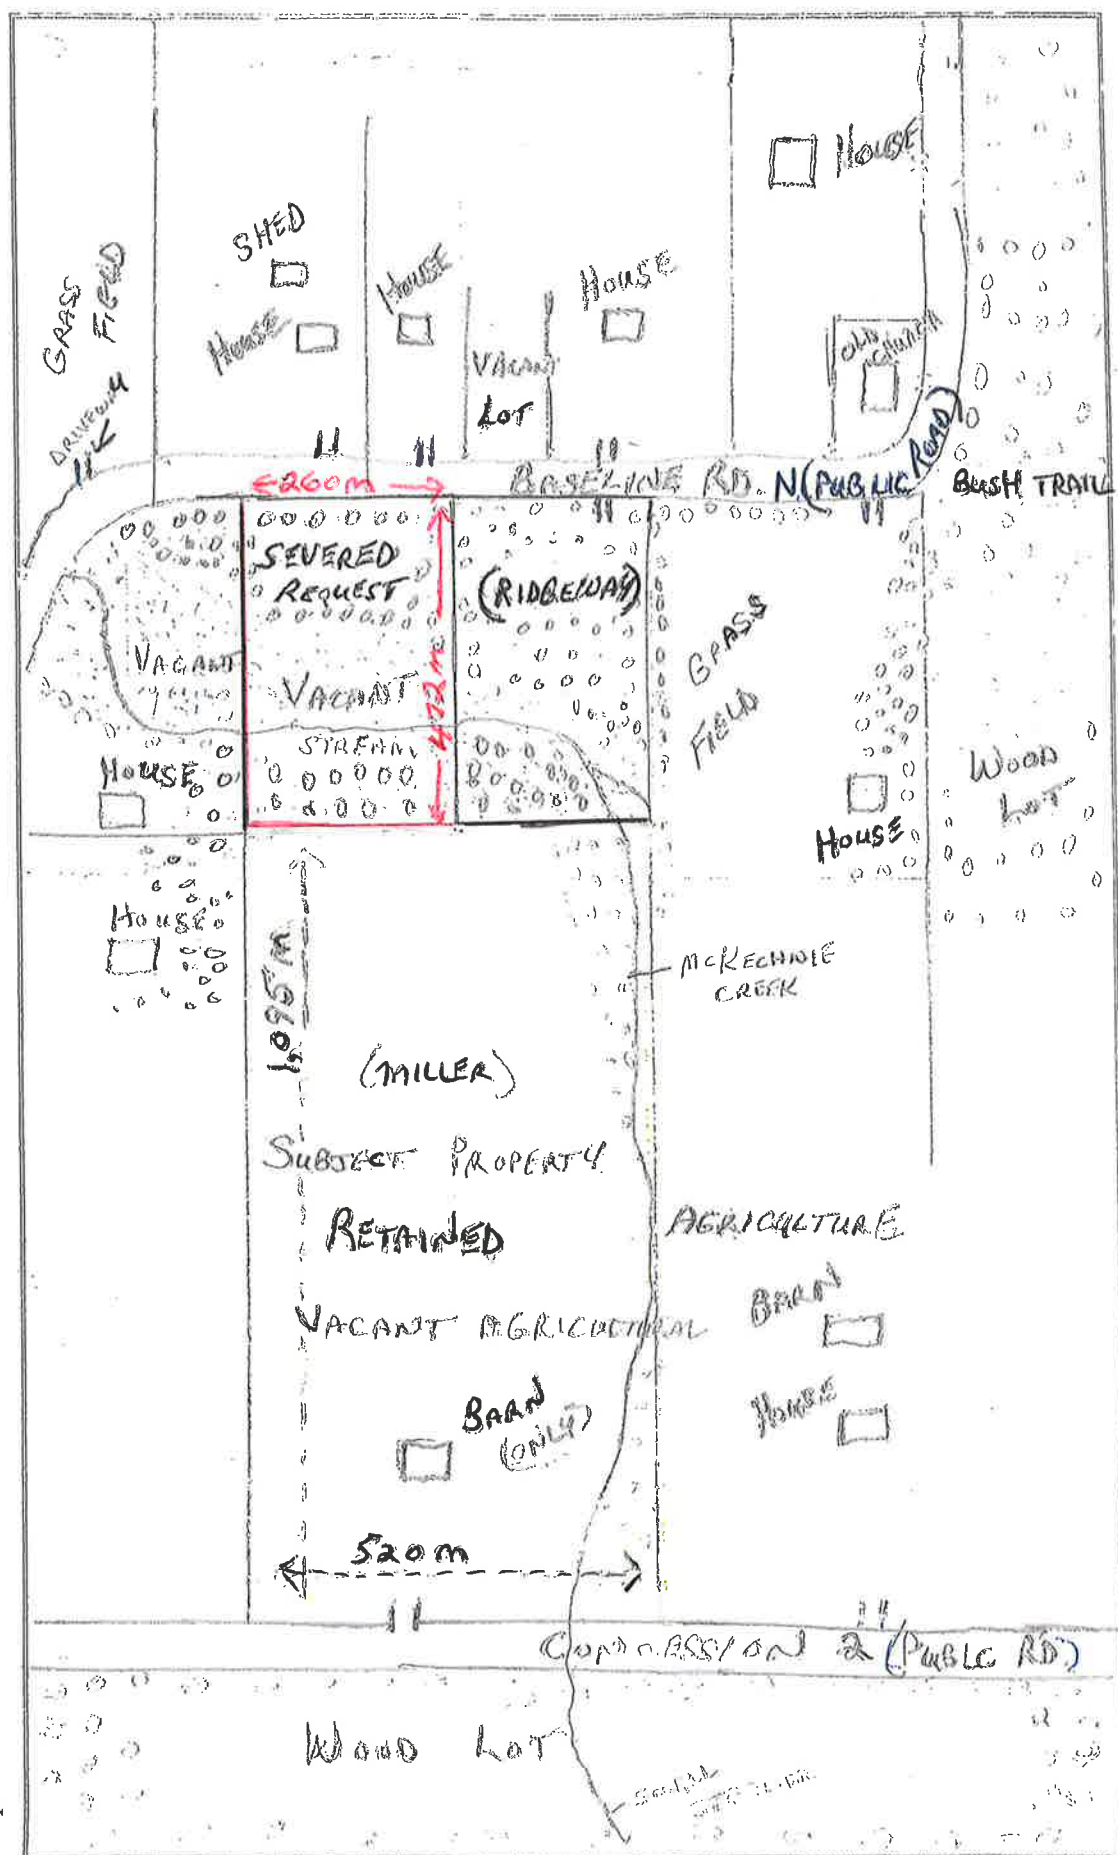 HOUSE
SHED
GRASS
FIELD
HOUSE
HOUSE
HOUSE
VACANT
LOT
OLD
CHURCH
DRIVEWAY
←260m→
BASELINE RD. N (PUBLIC ROAD)
BUSH TRAIL
SEVERED
REQUEST
(RIDGEWAY)
GRASS
FIELD
VACANT
VACANT
472m
STREAM
HOUSE
WOOD
LOT
HOUSE
HOUSE
1,095m
MCKECHNIE
CREEK
(MILLER)
SUBJECT PROPERTY
RETAINED
AGRICULTURE
VACANT AGRICULTURAL
BARN
BARN
(ONLY)
HOUSE
520m
2 (PUBLC RD.)
WOOD LOT